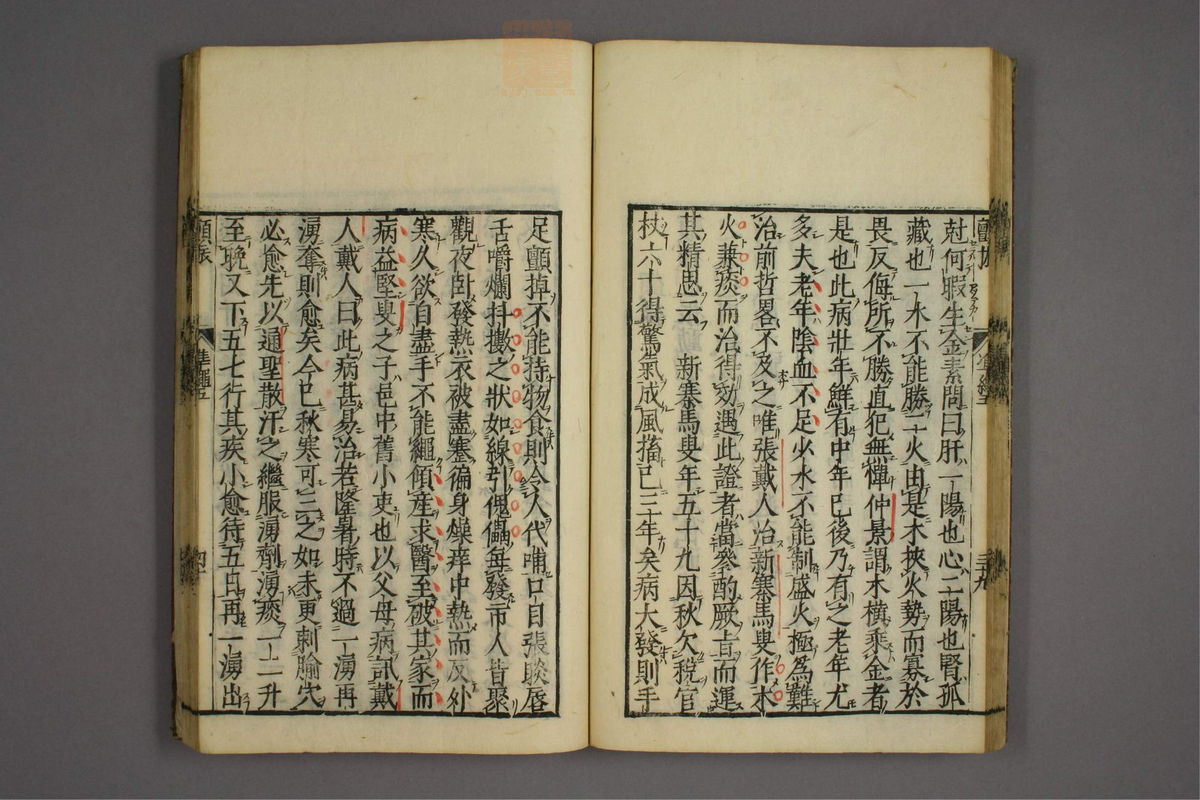 尅何暇生金素問曰肝一陽也心二陽也腎孤
藏也一水不能勝二火由是木挾火勢而寡於
畏反侮所不勝直犯無憚仲景謂木横乘金者
是也此病壯年鮮有中年已後乃有之老年尤
多夫老年陰血不足少水不能制盛火極爲難
治前哲畧不及之唯張戴人治新寨馬叟作木
火兼痰而治得効遇此證者當參酌厥旨而運
其精思云　新寨馬叟年五十九因秋欠税官
杖六十得驚氣成風搐已三年矣病大發則手
足顫掉不能持物食則令人代哺口目張睒唇
舌嚼爛抖擻之狀如線引傀儡每發市人皆聚
觀夜卧發熱衣被盡寒徧身燥痒中熱而反外
寒久欲自盡手不能繩傾産求醫至破其家而
病益堅叟之子邑中舊小吏也以父母病訊戴
人戴人曰此病甚易治若隆暑時不過一湧再
湧奪則愈矣今已秋寒可三之如未更刺腧穴
必愈先以通聖散汗之繼服湧劑湧痰一二升
至晩又下五七行其疾小愈待五日再一湧出